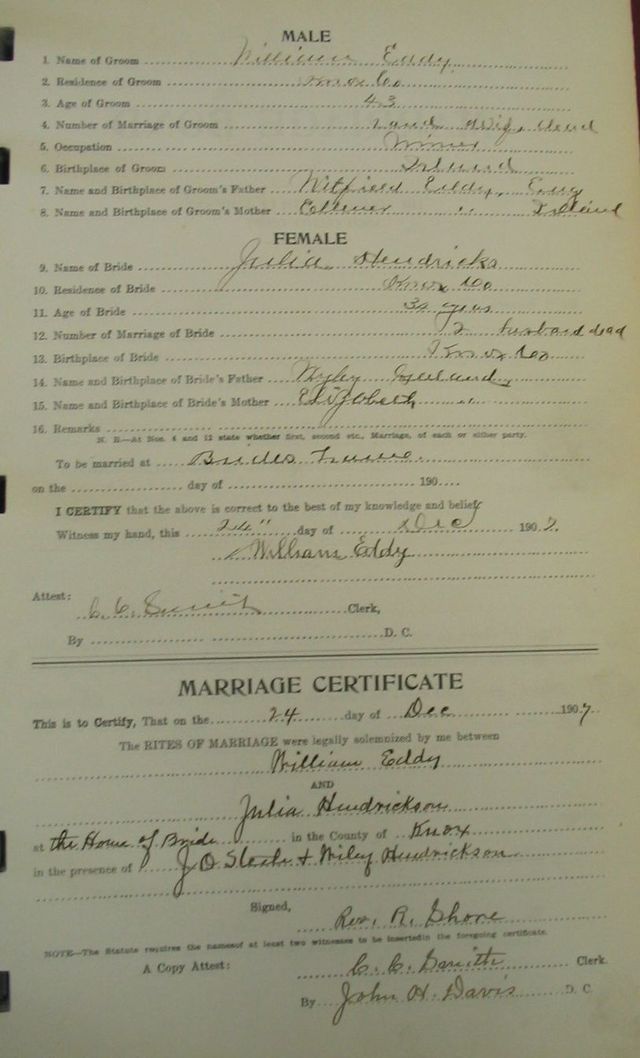 MALE
1. Name of Groom William Eddy
2. Residence of Groom Knox Co
3. Age of Groom 43
4. Number of Marriage of Groom 2 and wife dead
5. Occupation Miner
6. Birthplace of Groom Ireland
7. Name and Birthplace of Groom's Father Eddy, Eng
8. Name and Birthplace of Groom's Mother " Ireland
FEMALE
9. Name of Bride Julia Hendricks
10. Residence of Bride Knox Co
11. Age of Bride years
12. Number of Marriage of Bride 2 husband dead
13. Birthplace of Bride Knox Co
14. Name and Birthplace of Bride's Father
15. Name and Birthplace of Bride's Mother Elizabeth "
16. Remarks
N. B.—At Nos. 4 and 12 state whether first, second etc., Marriage, of each or either party.
To be married at Brides home.
on the day of 190
I CERTIFY that the above is correct to the best of my knowledge and belief
Witness my hand, this 24" day of Dec 1907
William Eddy
Attest:
C. C. Smith Clerk,
By D. C.
MARRIAGE CERTIFICATE
This is to Certify, That on the 24 day of Dec 1907
The RITES OF MARRIAGE were legally solemnized by me between
William Eddy
AND
Julia Hendrickson
at the Home of Bride in the County of Knox
in the presence of J O & Wiley Hendrickson
Signed,
Rev. R. Shore
NOTE—The Statute requires the names of at least two witnesses to be inserted in the foregoing certificate.
A Copy Attest: C. C. Smith Clerk.
By John H. Davis D. C.